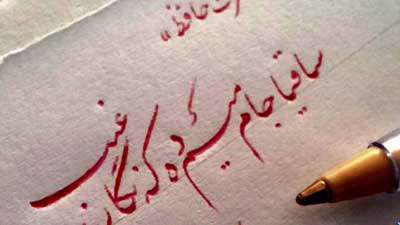 حافظ»
ساقیا جام میم ده که نگار غیب